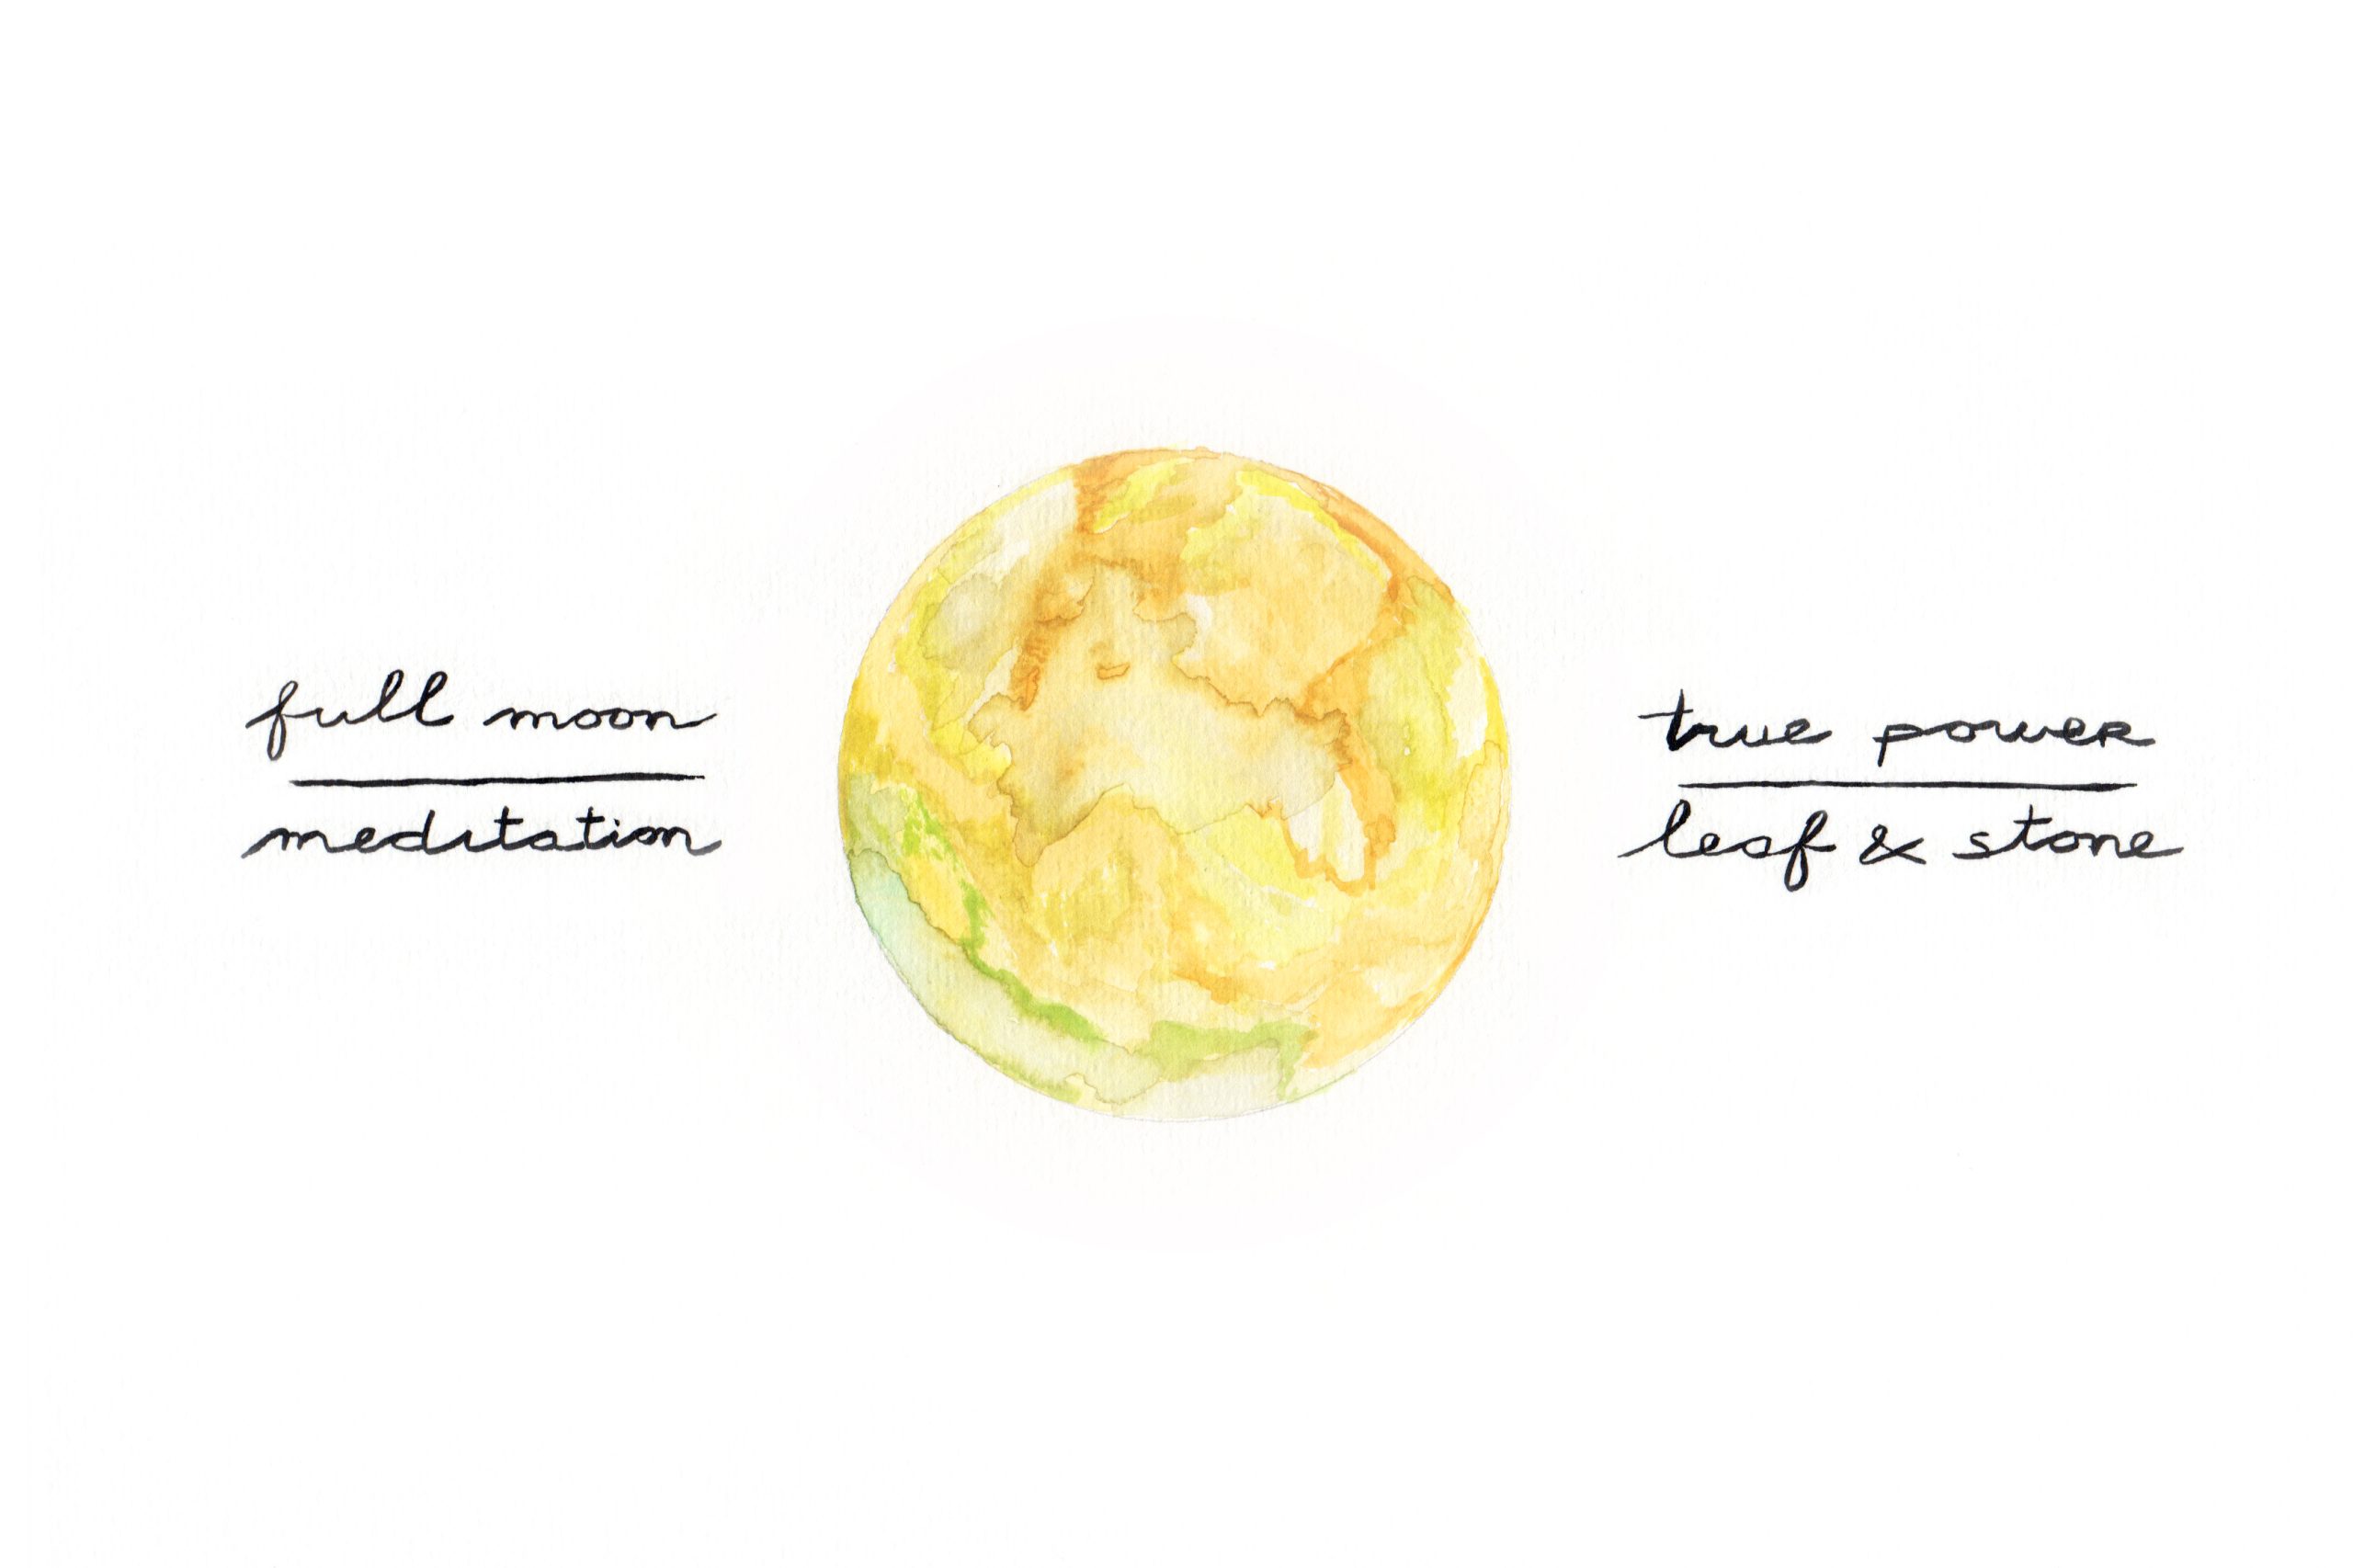 full moon
meditation
true power
leaf & stone